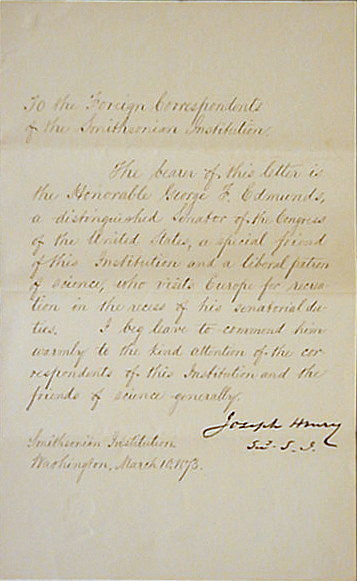 To the Foreign Correspondents
of the Smithsonian Institution.
The bearer of this letter is
the Honorable George F. Edmunds,
a distinguished Senator of the Congress
of the United States, a special friend
of this Institution and a liberal patron
of science, who visits Europe for recrea-
tion in the recess of his senatorial du-
ties. I beg leave to commend him
warmly to the kind attention of the cor-
respondents of this Institution and the
friends of science generally.
Joseph Henry
Smithsonian Institution
Washington, March 10, 1873.